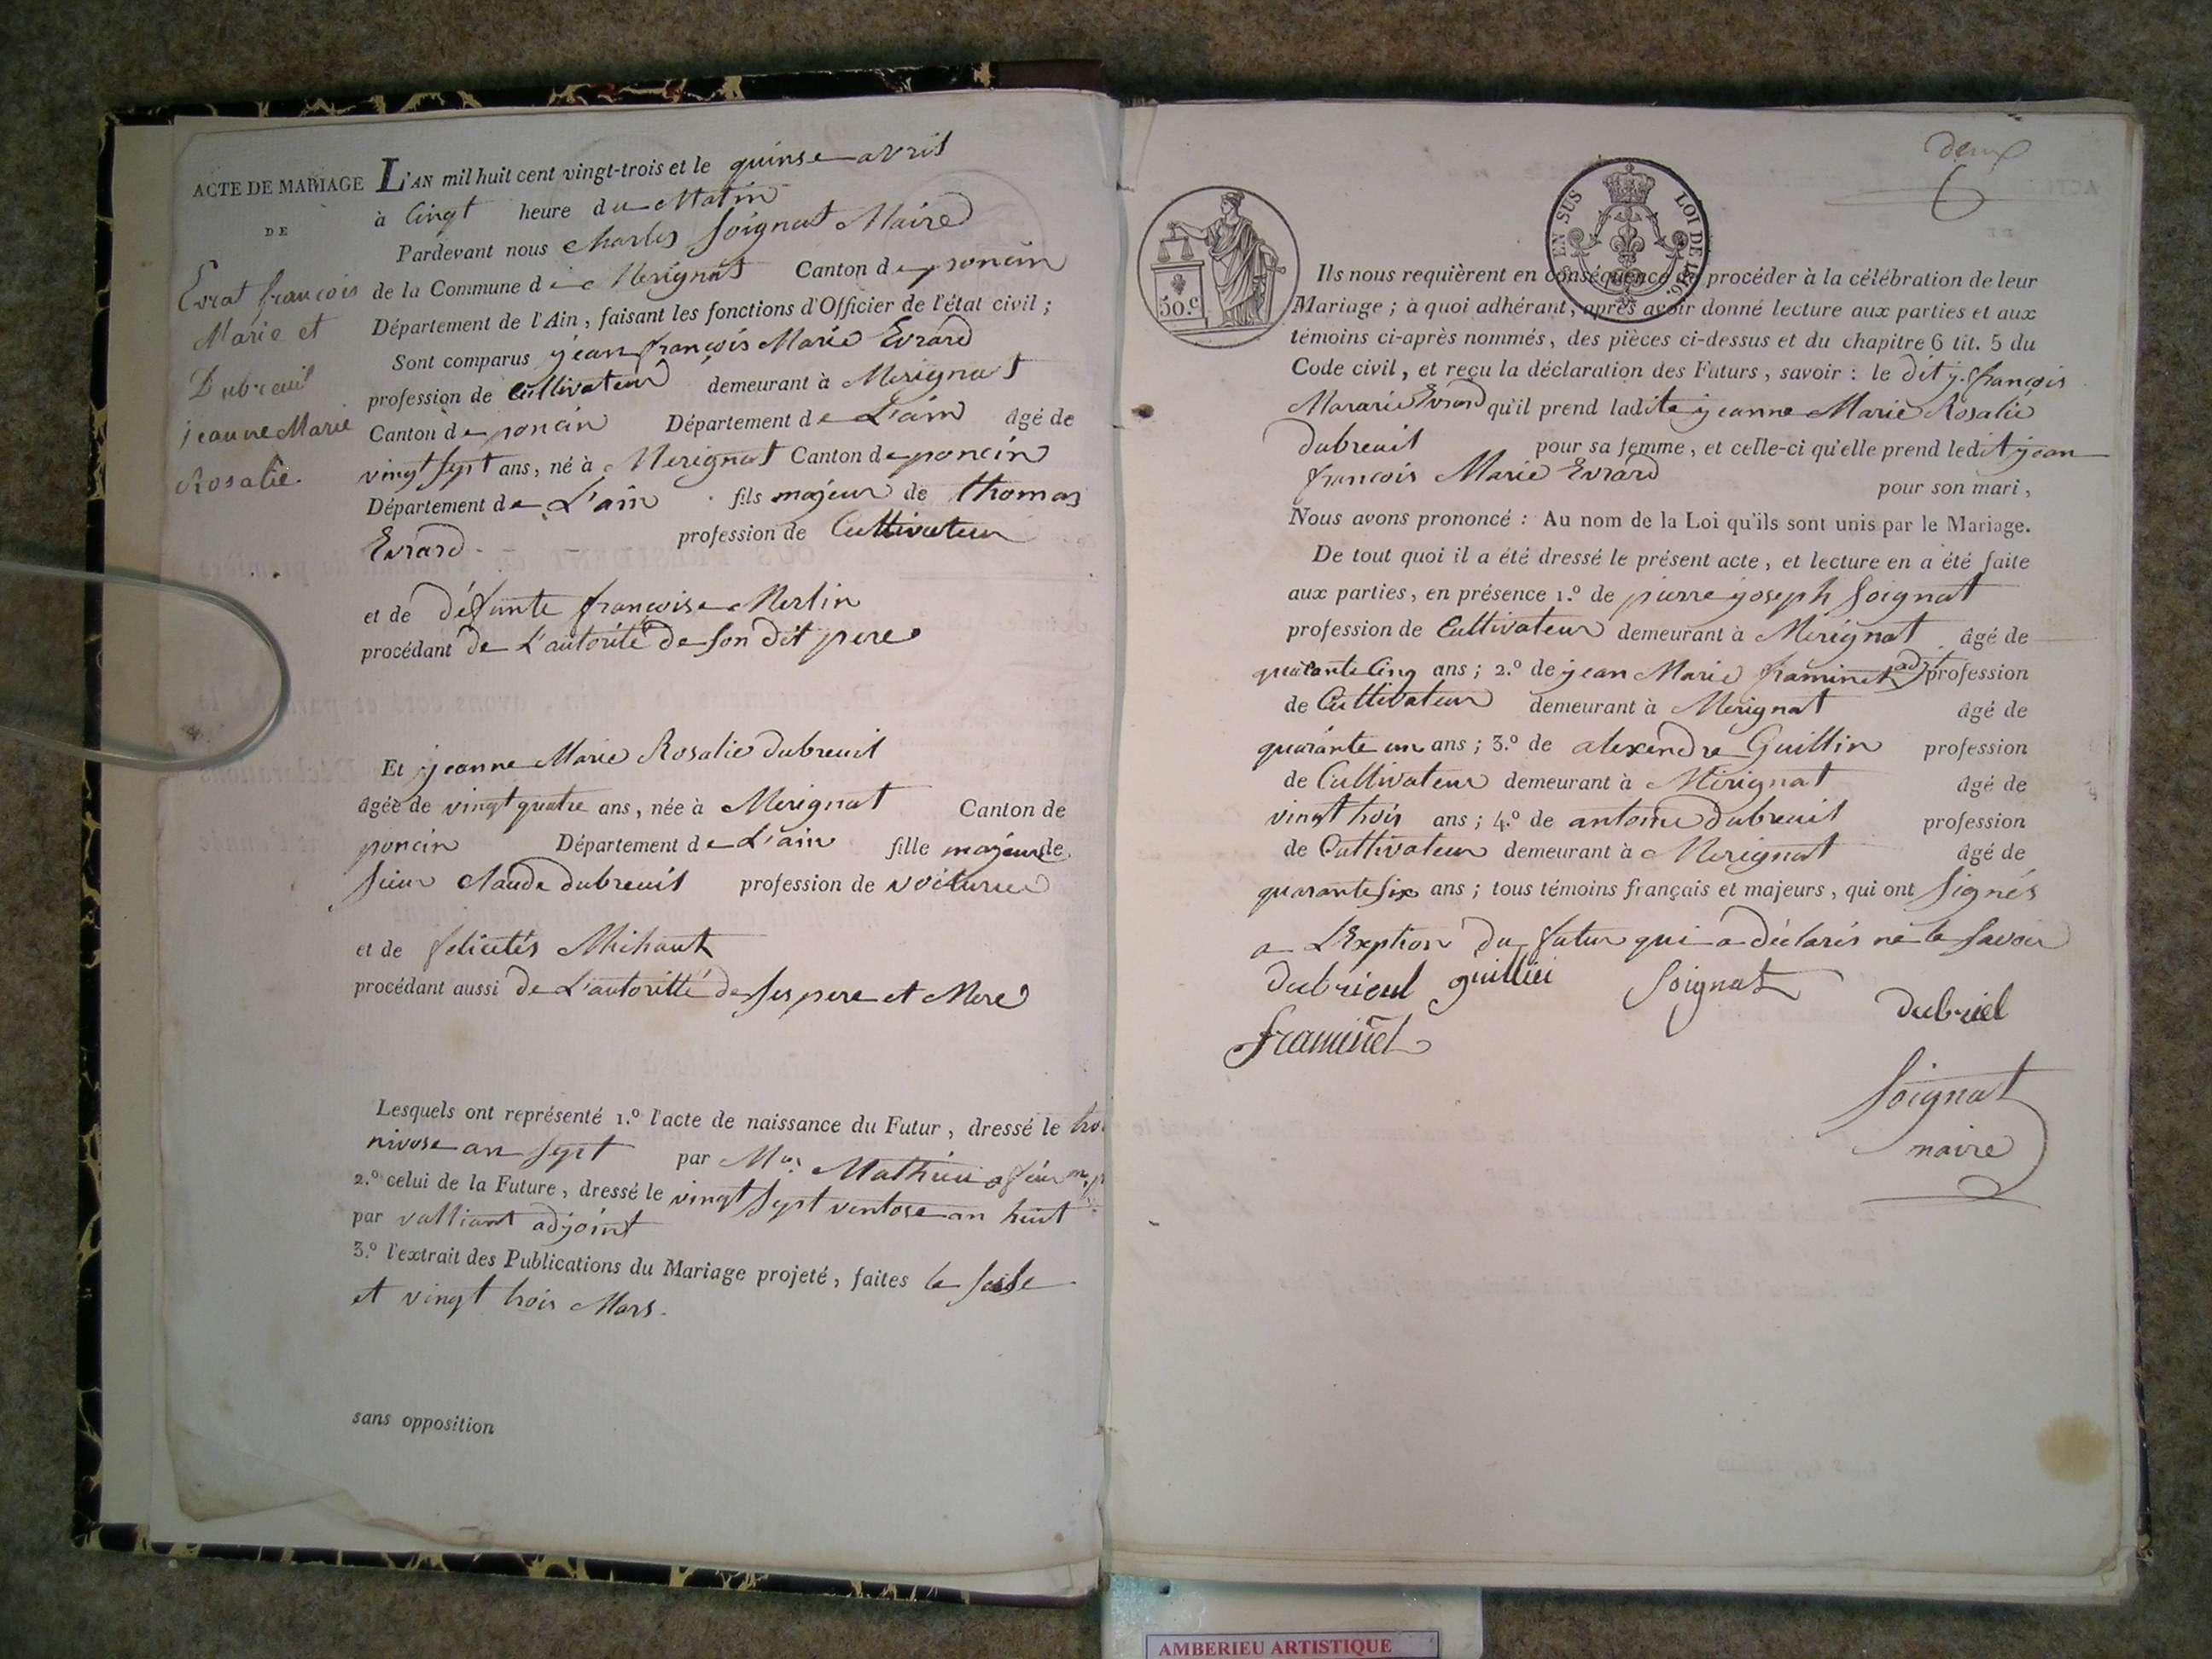 ACTE DE MARIAGE
DE
Evrat françois
Marie et
Dubreuil
jeanne Marie
Rosalie.
L'AN mil huit cent vingt-trois et le quinse avril
à Cinqt heure du Matin
Pardevant nous Charles Soignat Maire
de la Commune de Merignat Canton de poncin
Département de l'Ain, faisant les fonctions d'Officier de l'état civil ;
Sont comparus jean françois Marie Evrard
profession de Cultivateur demeurant à Merignat
Canton de poncin Département de L'ain âgé de
vingt sept ans, né à Merignat Canton de poncin
Département de L'ain fils majeur de thomas
Evrard profession de Cultivateur
et de défunte françoise Merlin
procédant de L'autorité de son dit pere
Et jeanne Marie Rosalie dubreuil
âgée de vingt quatre ans, née à Merignat Canton de
poncin Département de L'ain fille majeure de
sieur Claude dubreuil profession de voiturier
et de felicités Mihaut
procédant aussi de L'autoritté de ses pere et Mere
Lesquels ont représenté 1.º l'acte de naissance du Futur, dressé le
nivose an sept par Mathieu
2.º celui de la Future, dressé le vingt sept ventose an huit
par valliant adjoint
3.º l'extrait des Publications du Mariage projeté, faites le
et vingt trois Mars.
sans opposition
deux
50.c
EN SUS LOI DE 1816.
Ils nous requièrent en conséquence de procéder à la célébration de leur
Mariage ; à quoi adhérant, après avoir donné lecture aux parties et aux
témoins ci-après nommés, des pièces ci-dessus et du chapitre 6 tit. 5 du
Code civil, et reçu la déclaration des Futurs, savoir : le dit j. françois
Mararie Evrard qu'il prend ladite jeanne Marie Rosalie
dubreuil pour sa femme, et celle-ci qu'elle prend ledit jean
françois Marie Evrard pour son mari,
Nous avons prononcé : Au nom de la Loi qu'ils sont unis par le Mariage.
De tout quoi il a été dressé le présent acte, et lecture en a été faite
aux parties, en présence 1.º de pierre joseph Soignat
profession de Cultivateur demeurant à Merignat âgé de
quarante Cinq ans ; 2.º de jean Marie framinet adjt profession
de Cultivateur demeurant à Merignat âgé de
quarante un ans ; 3.º de alexendre Guillin profession
de Cultivateur demeurant à Merignat âgé de
vingt trois ans ; 4.º de antoine dubreuil profession
de Cultivateur demeurant à Merignat âgé de
quarante six ans ; tous témoins français et majeurs, qui ont signés
a L'Exption du futur qui a déclarés ne le savoir
dubrieul guillin Soignat dubriel
framinet
Soignat
maire
AMBERIEU ARTISTIQUE